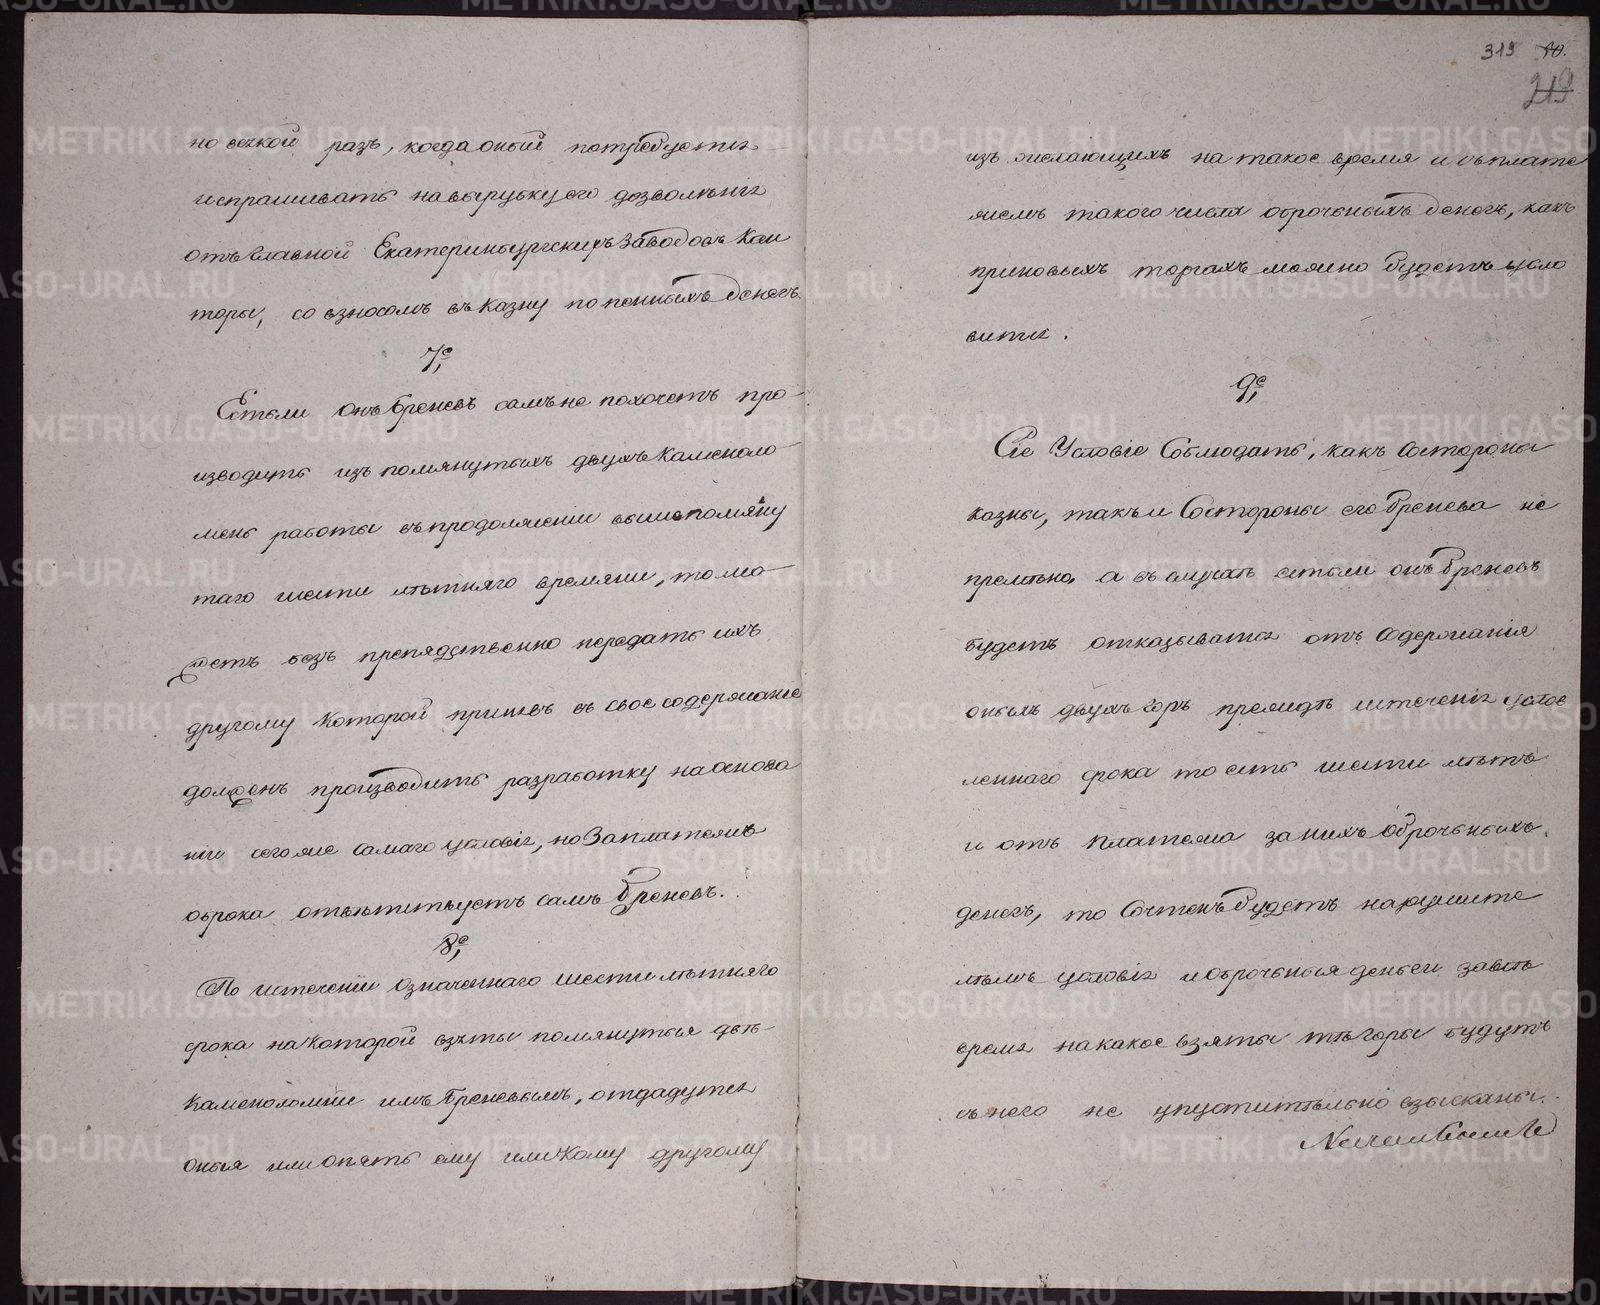 но всякой разъ, когда оной потребуется
испрашивать на вырубку его дозволенія
отъ Главной Екатеринбургскихъ Заводовъ Кан
торы, со взносомъ въ казну попенныхъ денегъ.
7е,
Естьли онъ Бреневъ самъ не похочетъ про
изводить изъ помянутыхъ двухъ Каменоло
менъ работы въ продолженіи вышепомяну
таго шести лѣтняго времяни, то мо
жетъ безъ препядственно передать ихъ
другому Которой принявъ въ свое содержаніе
долженъ производить разработку на основа
ніи сего же самаго условія, но За платежъ
оброка отвѣтствуетъ самъ Бреневъ.
8е,
По истеченіи Означеннаго шести лѣтняго
срока на Которой взяты помянутыя двѣ
Каменоломни имъ Бреневымъ, отдадутся
оныя или опять ему или Кому другому
319 40.
219
изъ желающихъ на такое время и съ плате
жемъ такого числа оброчныхъ денегъ, какъ
при новыхъ торгахъ можно будетъ усло
вится.
9е,
Сіе Условіе Соблюдать, какъ Состороны
казны, такъ и Состороны его Бренева не
премѣнно, а въ случаѣ естьли онъ Бреневъ
будетъ отказыватся отъ Содержанія
оныхъ двухъ горъ прежде истеченія услов
леннаго срока то есть шести лѣтъ
и отъ платежа за нихъ Оброчныхъ
денегъ, то Сочтенъ будетъ нарушите
лемъ условія и оброчныя деньги за все
время на какое взяты тѣ горы будутъ
съ него не упустительно взысканы.
METRIKI.GASO-URAL.RU